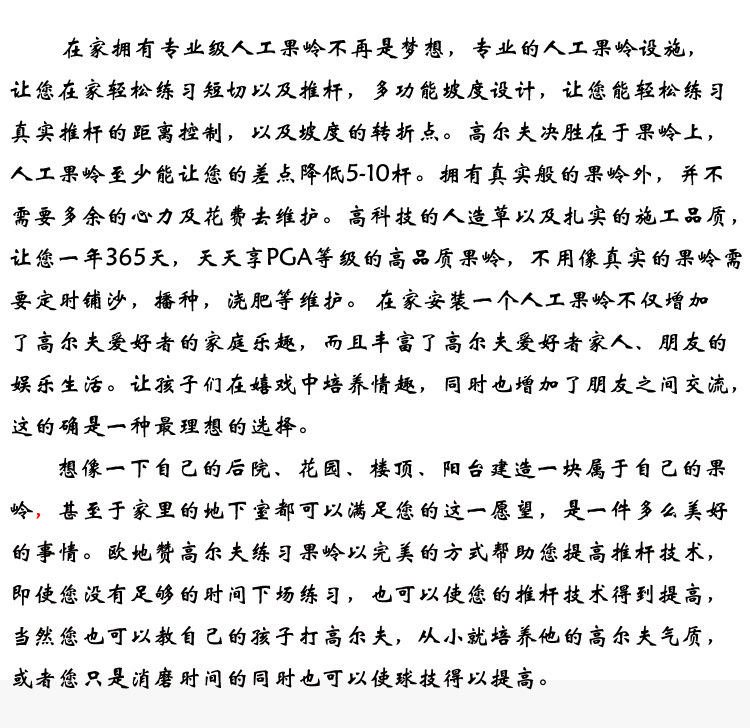 在家拥有专业级人工果岭不再是梦想，专业的人工果岭设施，
让您在家轻松练习短切以及推杆，多功能坡度设计，让您能轻松练习
真实推杆的距离控制，以及坡度的转折点。高尔夫决胜在于果岭上，
人工果岭至少能让您的差点降低5-10杆。拥有真实般的果岭外，并不
需要多余的心力及花费去维护。高科技的人造草以及扎实的施工品质，
让您一年365天，天天享PGA等级的高品质果岭，不用像真实的果岭需
要定时铺沙，播种，浇肥等维护。在家安装一个人工果岭不仅增加
了高尔夫爱好者的家庭乐趣，而且丰富了高尔夫爱好者家人、朋友的
娱乐生活。让孩子们在嬉戏中培养情趣，同时也增加了朋友之间交流，
这的确是一种最理想的选择。
想像一下自己的后院、花园、楼顶、阳台建造一块属于自己的果
岭，甚至于家里的地下室都可以满足您的这一愿望，是一件多么美好
的事情。欧地赞高尔夫练习果岭以完美的方式帮助您提高推杆技术，
即使您没有足够的时间下场练习，也可以使您的推杆技术得到提高，
当然您也可以教自己的孩子打高尔夫，从小就培养他的高尔夫气质，
或者您只是消磨时间的同时也可以使球技得以提高。